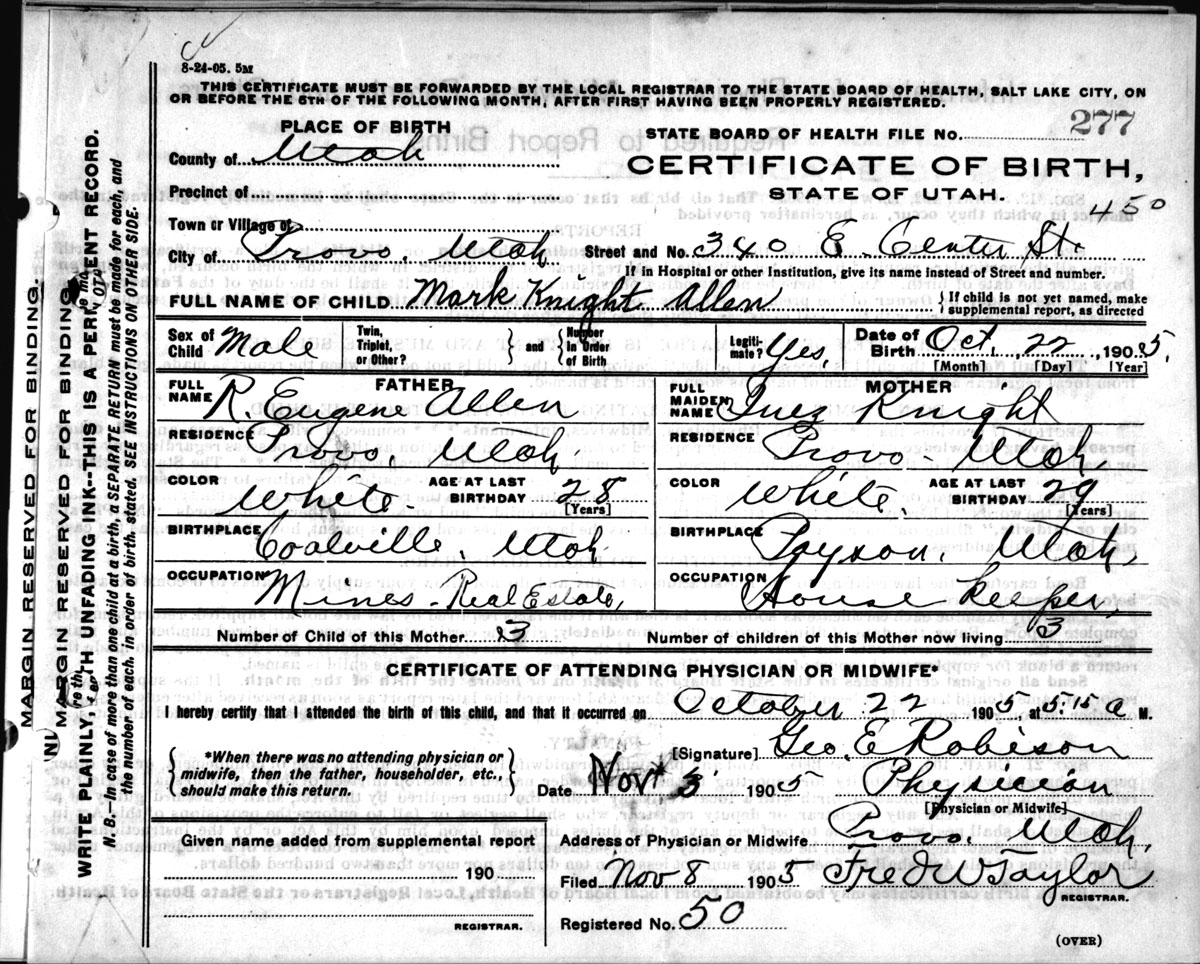 8-24-05. 5M
THIS CERTIFICATE MUST BE FORWARDED BY THE LOCAL REGISTRAR TO THE STATE BOARD OF HEALTH, SALT LAKE CITY, ON
OR BEFORE THE 5TH OF THE FOLLOWING MONTH, AFTER FIRST HAVING BEEN PROPERLY REGISTERED.
PLACE OF BIRTH
STATE BOARD OF HEALTH FILE No. 277
County of Utah
CERTIFICATE OF BIRTH,
Precinct of
STATE OF UTAH.
450
Town or Village of
City of Provo, Utah Street and No. 340 E. Center St.
If in Hospital or other Institution, give its name instead of Street and number.
FULL NAME OF CHILD Mark Knight Allen { If child is not yet named, make supplemental report, as directed
Sex of Child Male Twin, Triplet, or Other? } and { Number in Order of Birth Legitimate? Yes. Date of Birth Oct. 22, 1905.
[Month] [Day] [Year]
FATHER MOTHER
FULL NAME R. Eugene Allen FULL MAIDEN NAME Inez Knight
RESIDENCE Provo, Utah. RESIDENCE Provo - Utah.
COLOR White. AGE AT LAST BIRTHDAY 28 [Years] COLOR White. AGE AT LAST BIRTHDAY 29 [Years]
BIRTHPLACE Coalville, Utah BIRTHPLACE Payson, Utah.
OCCUPATION Mines - Real Estate, OCCUPATION House Keeper.
Number of Child of this Mother 3 Number of children of this Mother now living 3
CERTIFICATE OF ATTENDING PHYSICIAN OR MIDWIFE*
I hereby certify that I attended the birth of this child, and that it occurred on October 22 1905, at 5:15 a M.
{ *When there was no attending physician or midwife, then the father, householder, etc., should make this return. }
[Signature] Geo. E Robison
Date Nov 3 1905 Physician
[Physician or Midwife]
Given name added from supplemental report
Address of Physician or Midwife Provo, Utah.
190
Filed Nov 8 1905 Fred W Taylor
REGISTRAR.
REGISTRAR.
Registered No. 50
(OVER)
MARGIN RESERVED FOR BINDING.
MARGIN RESERVED FOR BINDING
WRITE PLAINLY, WITH UNFADING INK--THIS IS A PERMANENT RECORD.
N. B.--In case of more than one child at a birth, a SEPARATE RETURN must be made for each, and
the number of each, in order of birth, stated. SEE INSTRUCTIONS ON OTHER SIDE.